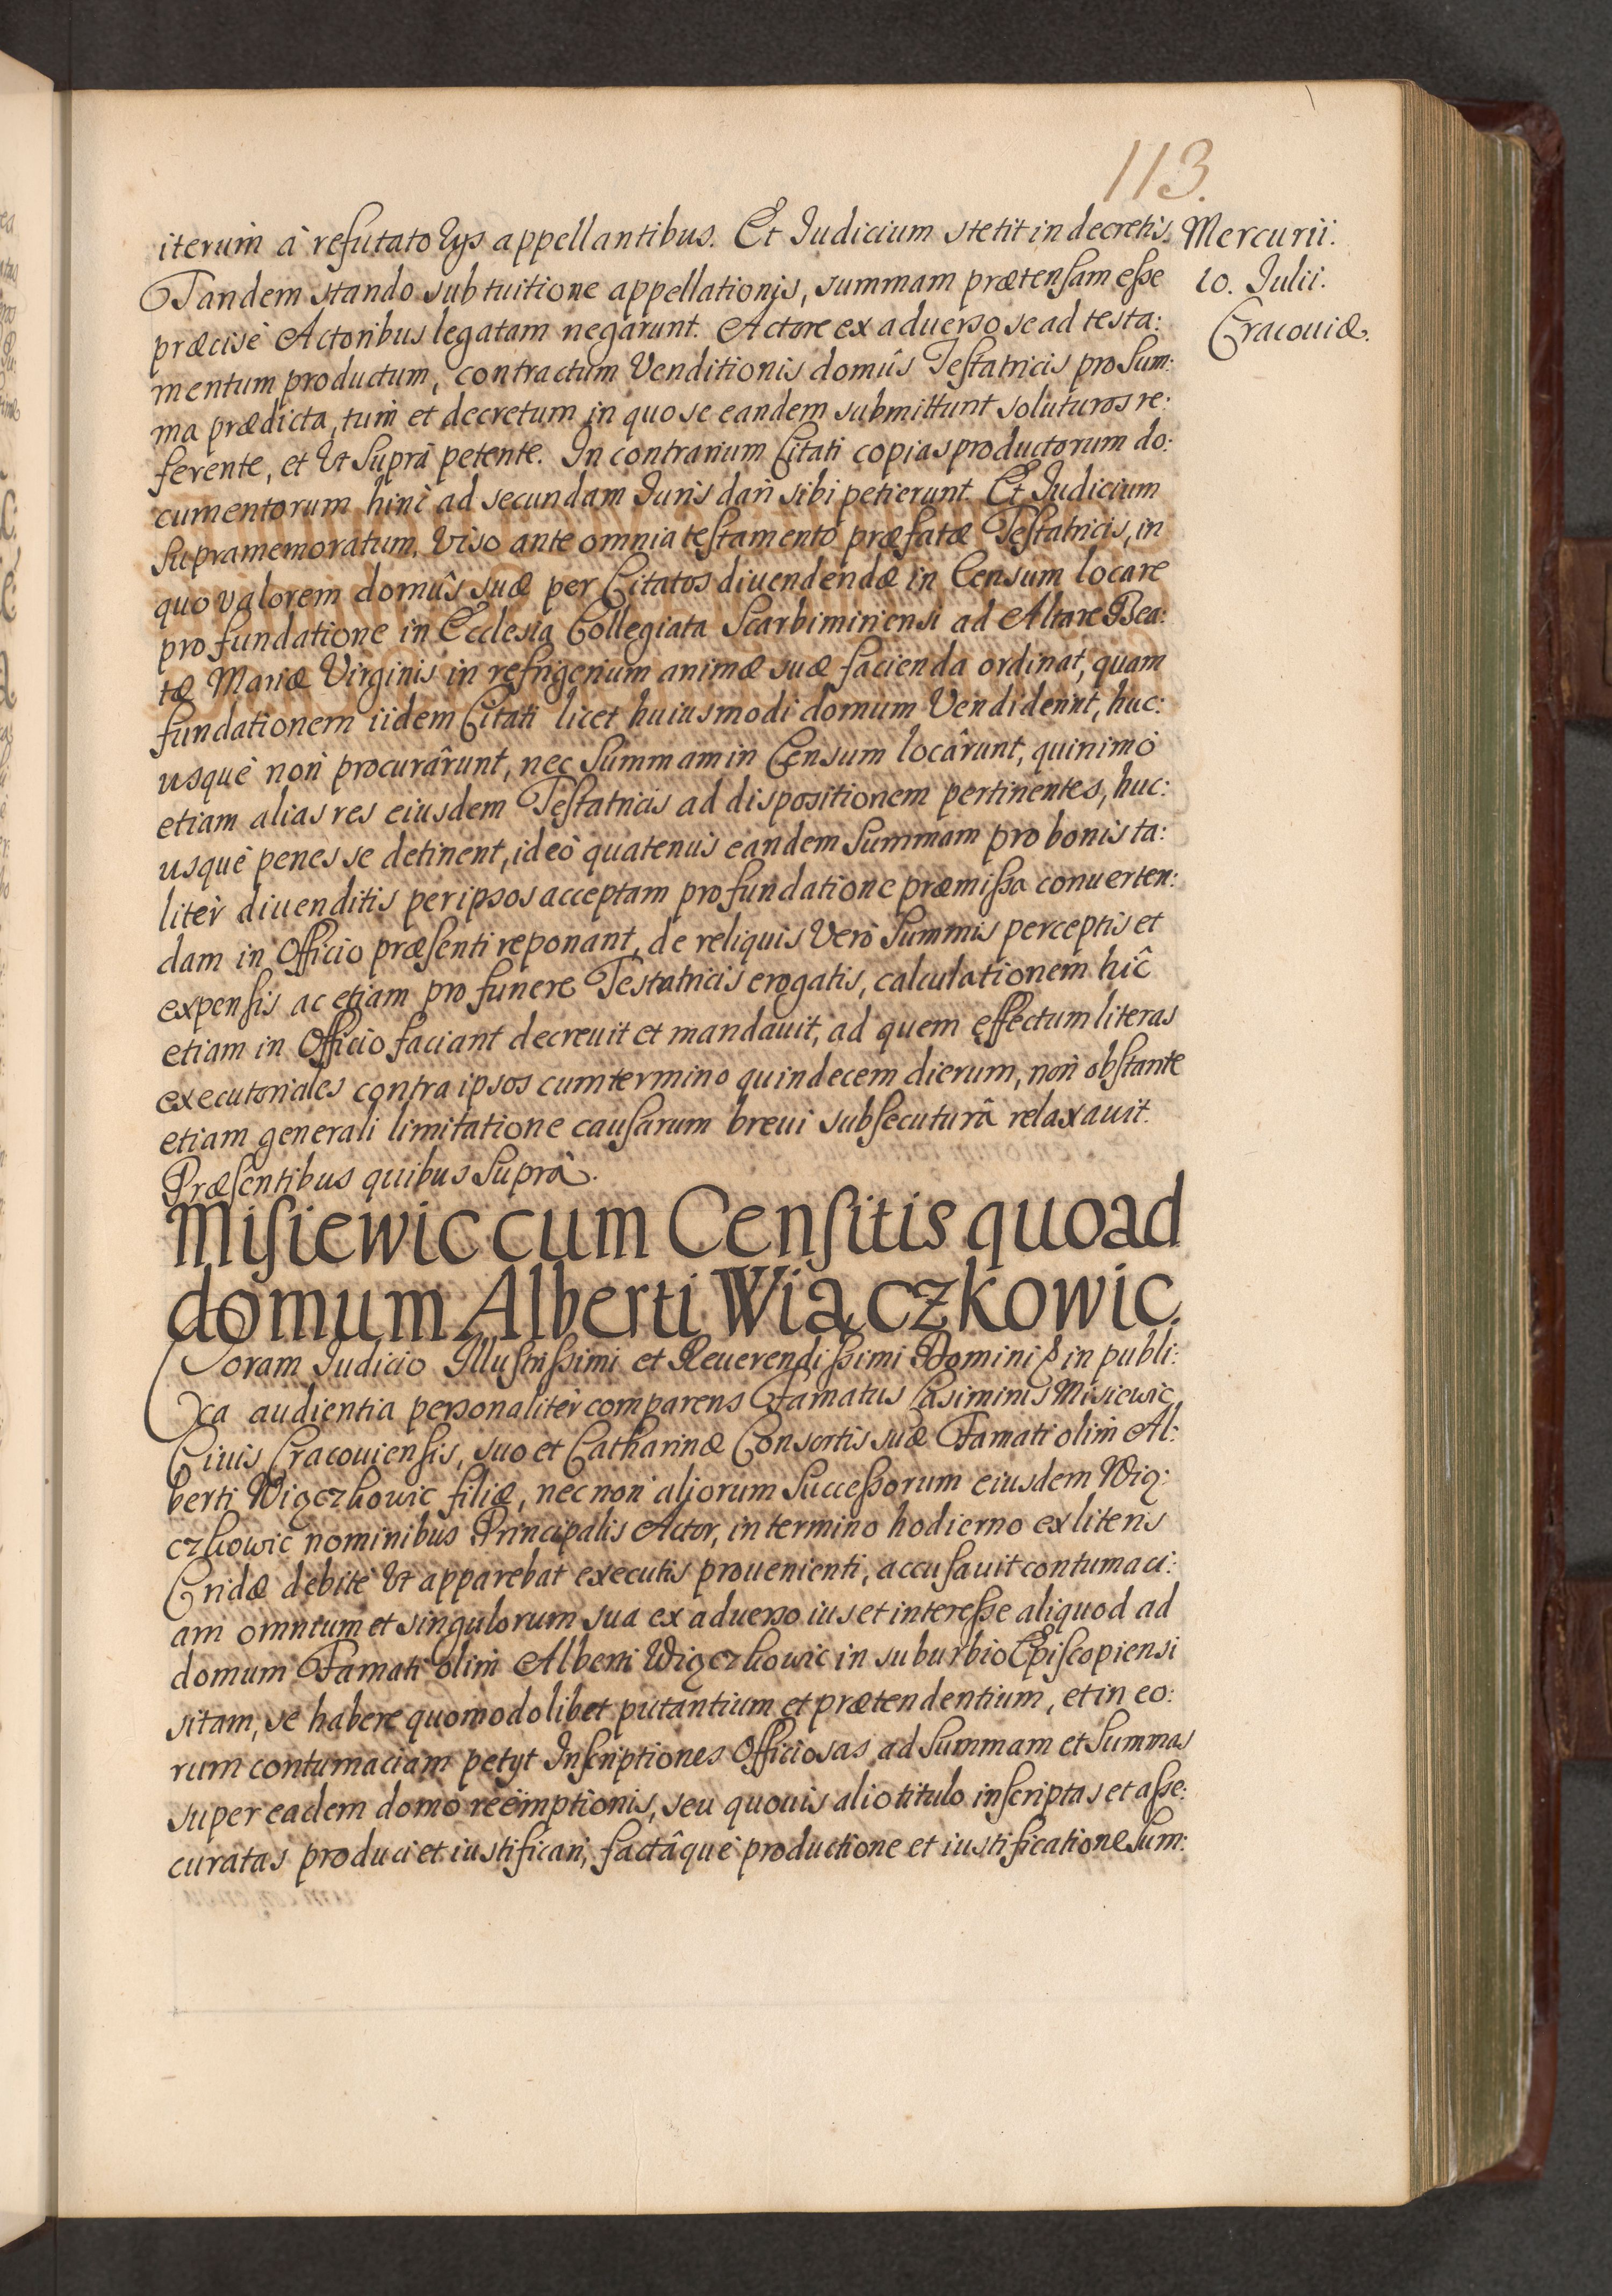 113.
Mercurii.
10. Julii.
Cracouiæ.
iterum à refutato Ijs appellantibus. Et Judicium stetit in decretis.
Tandem stando sub tuitione appellationis, summam prætensam esse
præcisè Actoribus legatam negarunt. Actore ex aduerso se ad testa:
mentum productum, contractum Venditionis domûs Testatricis pro Sum:
ma prædicta, tum et decretum in quo se eandem submittunt soluturos re:
ferente, et Vt Suprà petente. In contrarium Citati copias productorum do:
cumentorum hinc ad secundam Juris dari sibi petierunt. Et Judicium
Supramemoratum, Viso ante omnia testamento præfatæ Testatricis, in
quo valorem domûs suæ per Citatos diuendendæ in Censum locare
pro fundatione in Ecclesia Collegiata Scarbimiriensi ad Altare Bea:
tæ Mariæ Virginis in refrigerium animæ suæ facienda ordinat, quam
fundationem iidem Citati licet huiusmodi domum Vendiderint, huc:
usquè non procurârunt, nec Summam in Censum locârunt, quinimò
etiam alias res eiusdem Testatricis ad dispositionem pertinentes, huc:
usquè penes se detinent, ideò quatenus eandem Summam pro bonis ta:
litèr diuenditis per ipsos acceptam pro fundatione præmissa conuerten:
dam in Officio præsenti reponant, de reliquis Verò Summis perceptis et
expensis ac etiam pro funere Testatricis erogatis, calculationem hîc
etiam in Officio faciant decreuit et mandauit, ad quem effectum literas
executoriales contra ipsos cum termino quindecem dierum, non obstante
etiam generali limitatione causarum breui subsecuturâ relaxauit.
Præsentibus quibus Suprà.
Misiewic cum Censitis quoad
domum Alberti Wiączkowic.
Coram Judicio Illustrissimi et Reuerendissimi Domini & in publi:
ca audientia personalitèr comparens Famatus Casimirus Misiewic
Ciuis Cracouiensis, suo et Catharinæ Consortis suæ Famati olim Al:
berti Wiączkowic filiæ, nec non aliorum Successorum eiusdem Wią:
czkowic nominibus Principalis Actor, in termino hodierno ex literis
Cridæ debitè Vt apparebat executis prouenienti, accusauit contumaci:
am omnium et singulorum sua ex aduerso ius et interesse aliquod ad
domum Famati olim Alberti Wiączkowic in suburbio Episcopiensi
sitam, se habere quomodolibet putantium et prætendentium, et in eo:
rum contumaciam petyt Inscriptiones Officiosas ad Summam et Summas
super eadem domo reëmptionis, seu quouis alio titulo inscriptas et asse:
curatas produci et iustificari, factâque productione et iustificatione Sum: